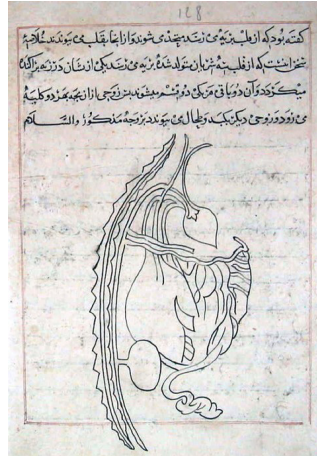 128
کفته بود که از قلب بریه می رسد متحدی شوند و از انجا بقلب می پیوندند خلاصه
سخن انست که از قلب شریان تولد شده بریه می رسد یکی از نشان در ریه پراکنده
میکردد و آن دو باقی مر یکی دو قسم میشوند پس زوجی از انجه بهر دو کلیه
می رود و زوجی دیکر بکبد و طحال می پیوندد بر وجه مذکور والسلام